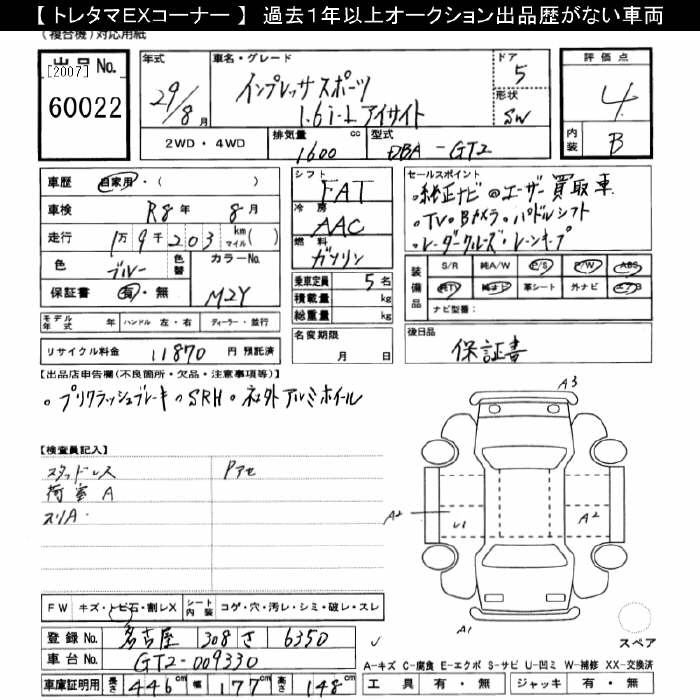 【 トレタマEXコーナー 】 過去1年以上オークション出品歴がない車両
(複合機)対応用紙
出品No.
[2007]
60022
年式
29/8月
車名・グレード
インプレッサスポーツ
1.6i-L アイサイト
ドア
5
形状
SW
評価点
4
内装
B
2WD・4WD
排気量
1600
cc
型式
DBA-GT2
車歴
自家用・( )
車検
R8年 8月
走行
1万9千203 km マイル( )
色
ブルー
色替
カラーNo.
M2Y
保証書
有・無
モデル年式 年
ハンドル 左・右
ディーラー・並行
リサイクル料金 11870 円 預託済
シフト
FAT
冷房
AAC
燃料
ガソリン
乗車定員 5 名
積載量 kg
総重量 kg
名変期限
月 日
セールスポイント
・純正ナビ・ユーザー買取車
・TV・Bカメラ・パドルシフト
・レーダークルーズ・レーンキープ
装備品
S/R 純A/W P/S P/W ABS
純TV 純ナビ 革シート 外ナビ エアB
ナビ型番:
後日品
保証書
【出品店申告欄(不良箇所・欠品・注意事項等)】
・プリクラッシュブレーキ・SRH・社外アルミホイール
【検査員記入】
スタッドレス
Pアセ
荷室 A
スリA
A3
A2
U1
A2
A1
スペア
FW キズ・トビ石・割レX
シート内装 コゲ・穴・汚レ・シミ・破レ・スレ
登録No. 名古屋 308 さ 6350
車台No. GT2-009330
車庫証明用 長さ 446 cm 幅 177 cm 高さ 148 cm
A-キズ C-腐食 E-エクボ S-サビ U-凹ミ W-補修 XX-交換済
工具 有・無 ジャッキ 有・無